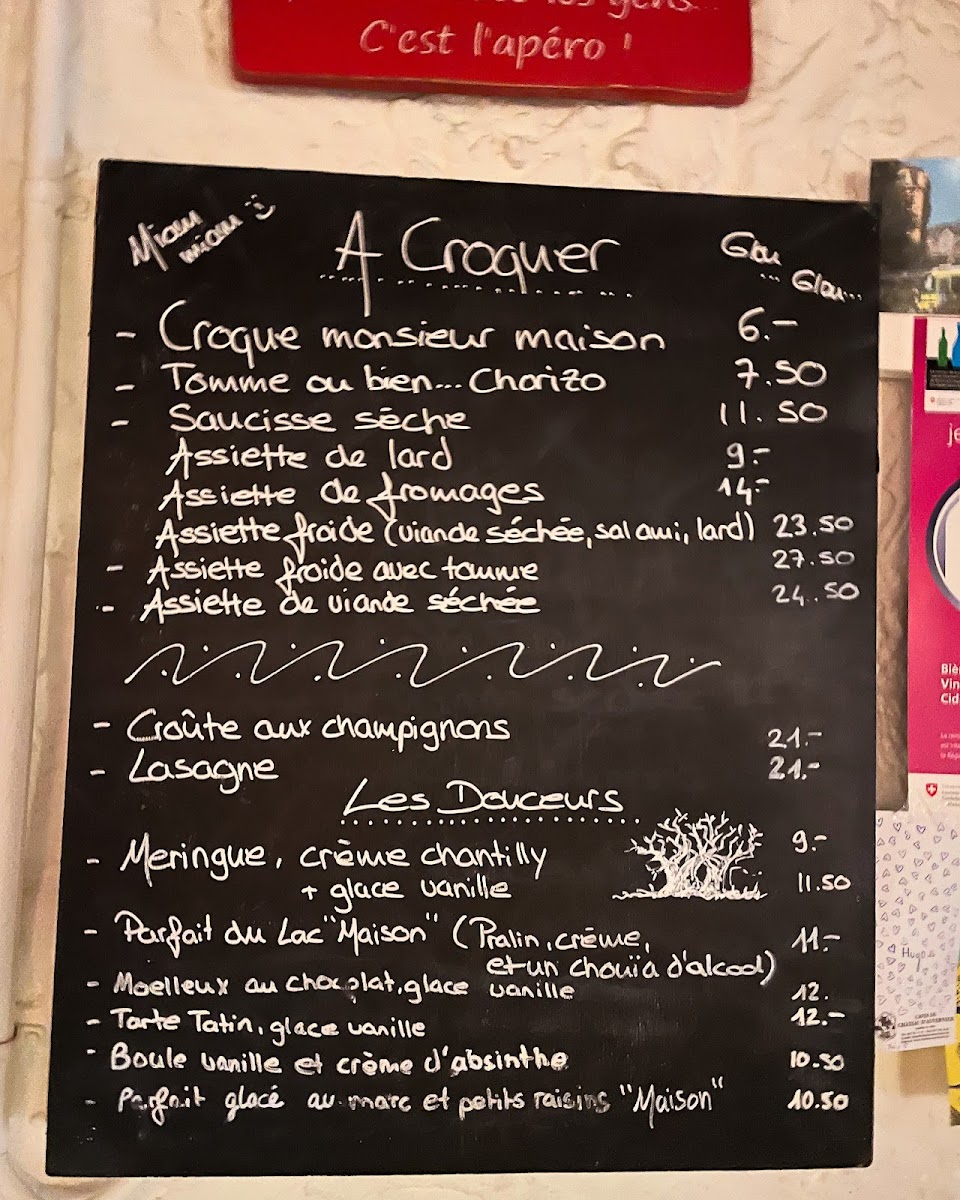 C'est l'apéro !
Miam
miam
A Croquer
Glou
... Glou...
- Croque monsieur maison 6.-
- Tomme ou bien... Chorizo 7.50
- Saucisse sèche 11.50
Assiette de lard 9.-
Assiette de fromages 14.-
Assiette froide (viande séchée, salami, lard) 23.50
- Assiette froide avec tomme 27.50
- Assiette de viande séchée 24.50
- Croûte aux champignons 21.-
- Lasagne 21.-
Les Douceurs
- Meringue, crème chantilly 9.-
+ glace vanille 11.50
- Parfait du Lac "Maison" (Pralin, crème, 11.-
et un chouïa d'alcool)
- Moelleux au chocolat, glace vanille 12.
- Tarte Tatin, glace vanille 12.-
- Boule vanille et crème d'absinthe 10.50
- Parfait glacé au marc et petits raisins "Maison" 10.50
je
Biè
Vin
Cid
Hugo